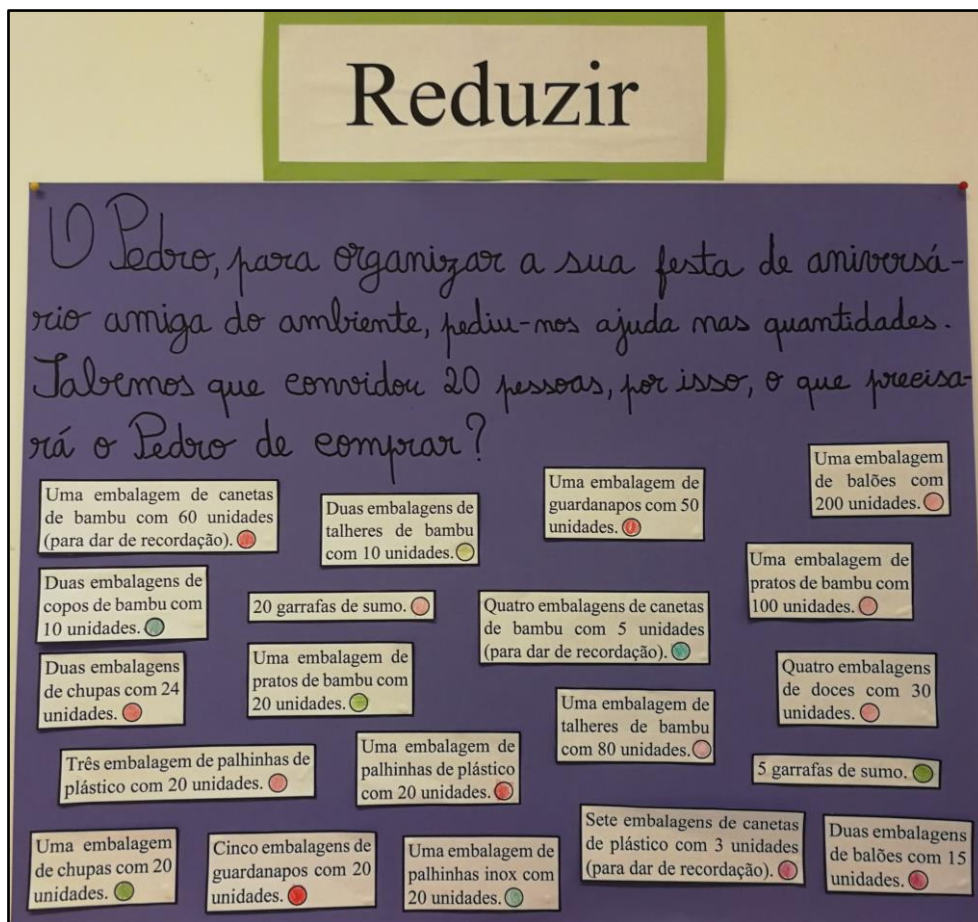 Reduzir
O Pedro, para organizar a sua festa de aniversá-
rio amiga do ambiente, pediu-nos ajuda nas quantidades.
Sabemos que convidou 20 pessoas, por isso, o que precisa-
rá o Pedro de comprar?
Uma embalagem de canetas
de bambu com 60 unidades
(para dar de recordação).
Duas embalagens de
talheres de bambu
com 10 unidades.
Uma embalagem de
guardanapos com 50
unidades.
Uma embalagem
de balões com
200 unidades.
Duas embalagens de
copos de bambu com
10 unidades.
20 garrafas de sumo.
Quatro embalagens de canetas
de bambu com 5 unidades
(para dar de recordação).
Uma embalagem de
pratos de bambu com
100 unidades.
Duas embalagens
de chupas com 24
unidades.
Uma embalagem de
pratos de bambu com
20 unidades.
Uma embalagem de
talheres de bambu
com 80 unidades.
Quatro embalagens
de doces com 30
unidades.
Três embalagem de palhinhas de
plástico com 20 unidades.
Uma embalagem de
palhinhas de plástico
com 20 unidades.
5 garrafas de sumo.
Uma embalagem
de chupas com 20
unidades.
Cinco embalagens de
guardanapos com 20
unidades.
Uma embalagem de
palhinhas inox com
20 unidades.
Sete embalagens de canetas
de plástico com 3 unidades
(para dar de recordação).
Duas embalagens
de balões com 15
unidades.